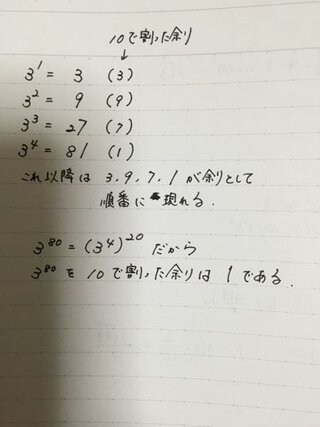 10で割った余り
↓
3^1 = 3 (3)
3^2 = 9 (9)
3^3 = 27 (7)
3^4 = 81 (1)
これ以降は 3、9、7、1 が余りとして
順番に現れる.
3^80 = (3^4)^20 だから
3^80 を 10で割った余りは 1 である.